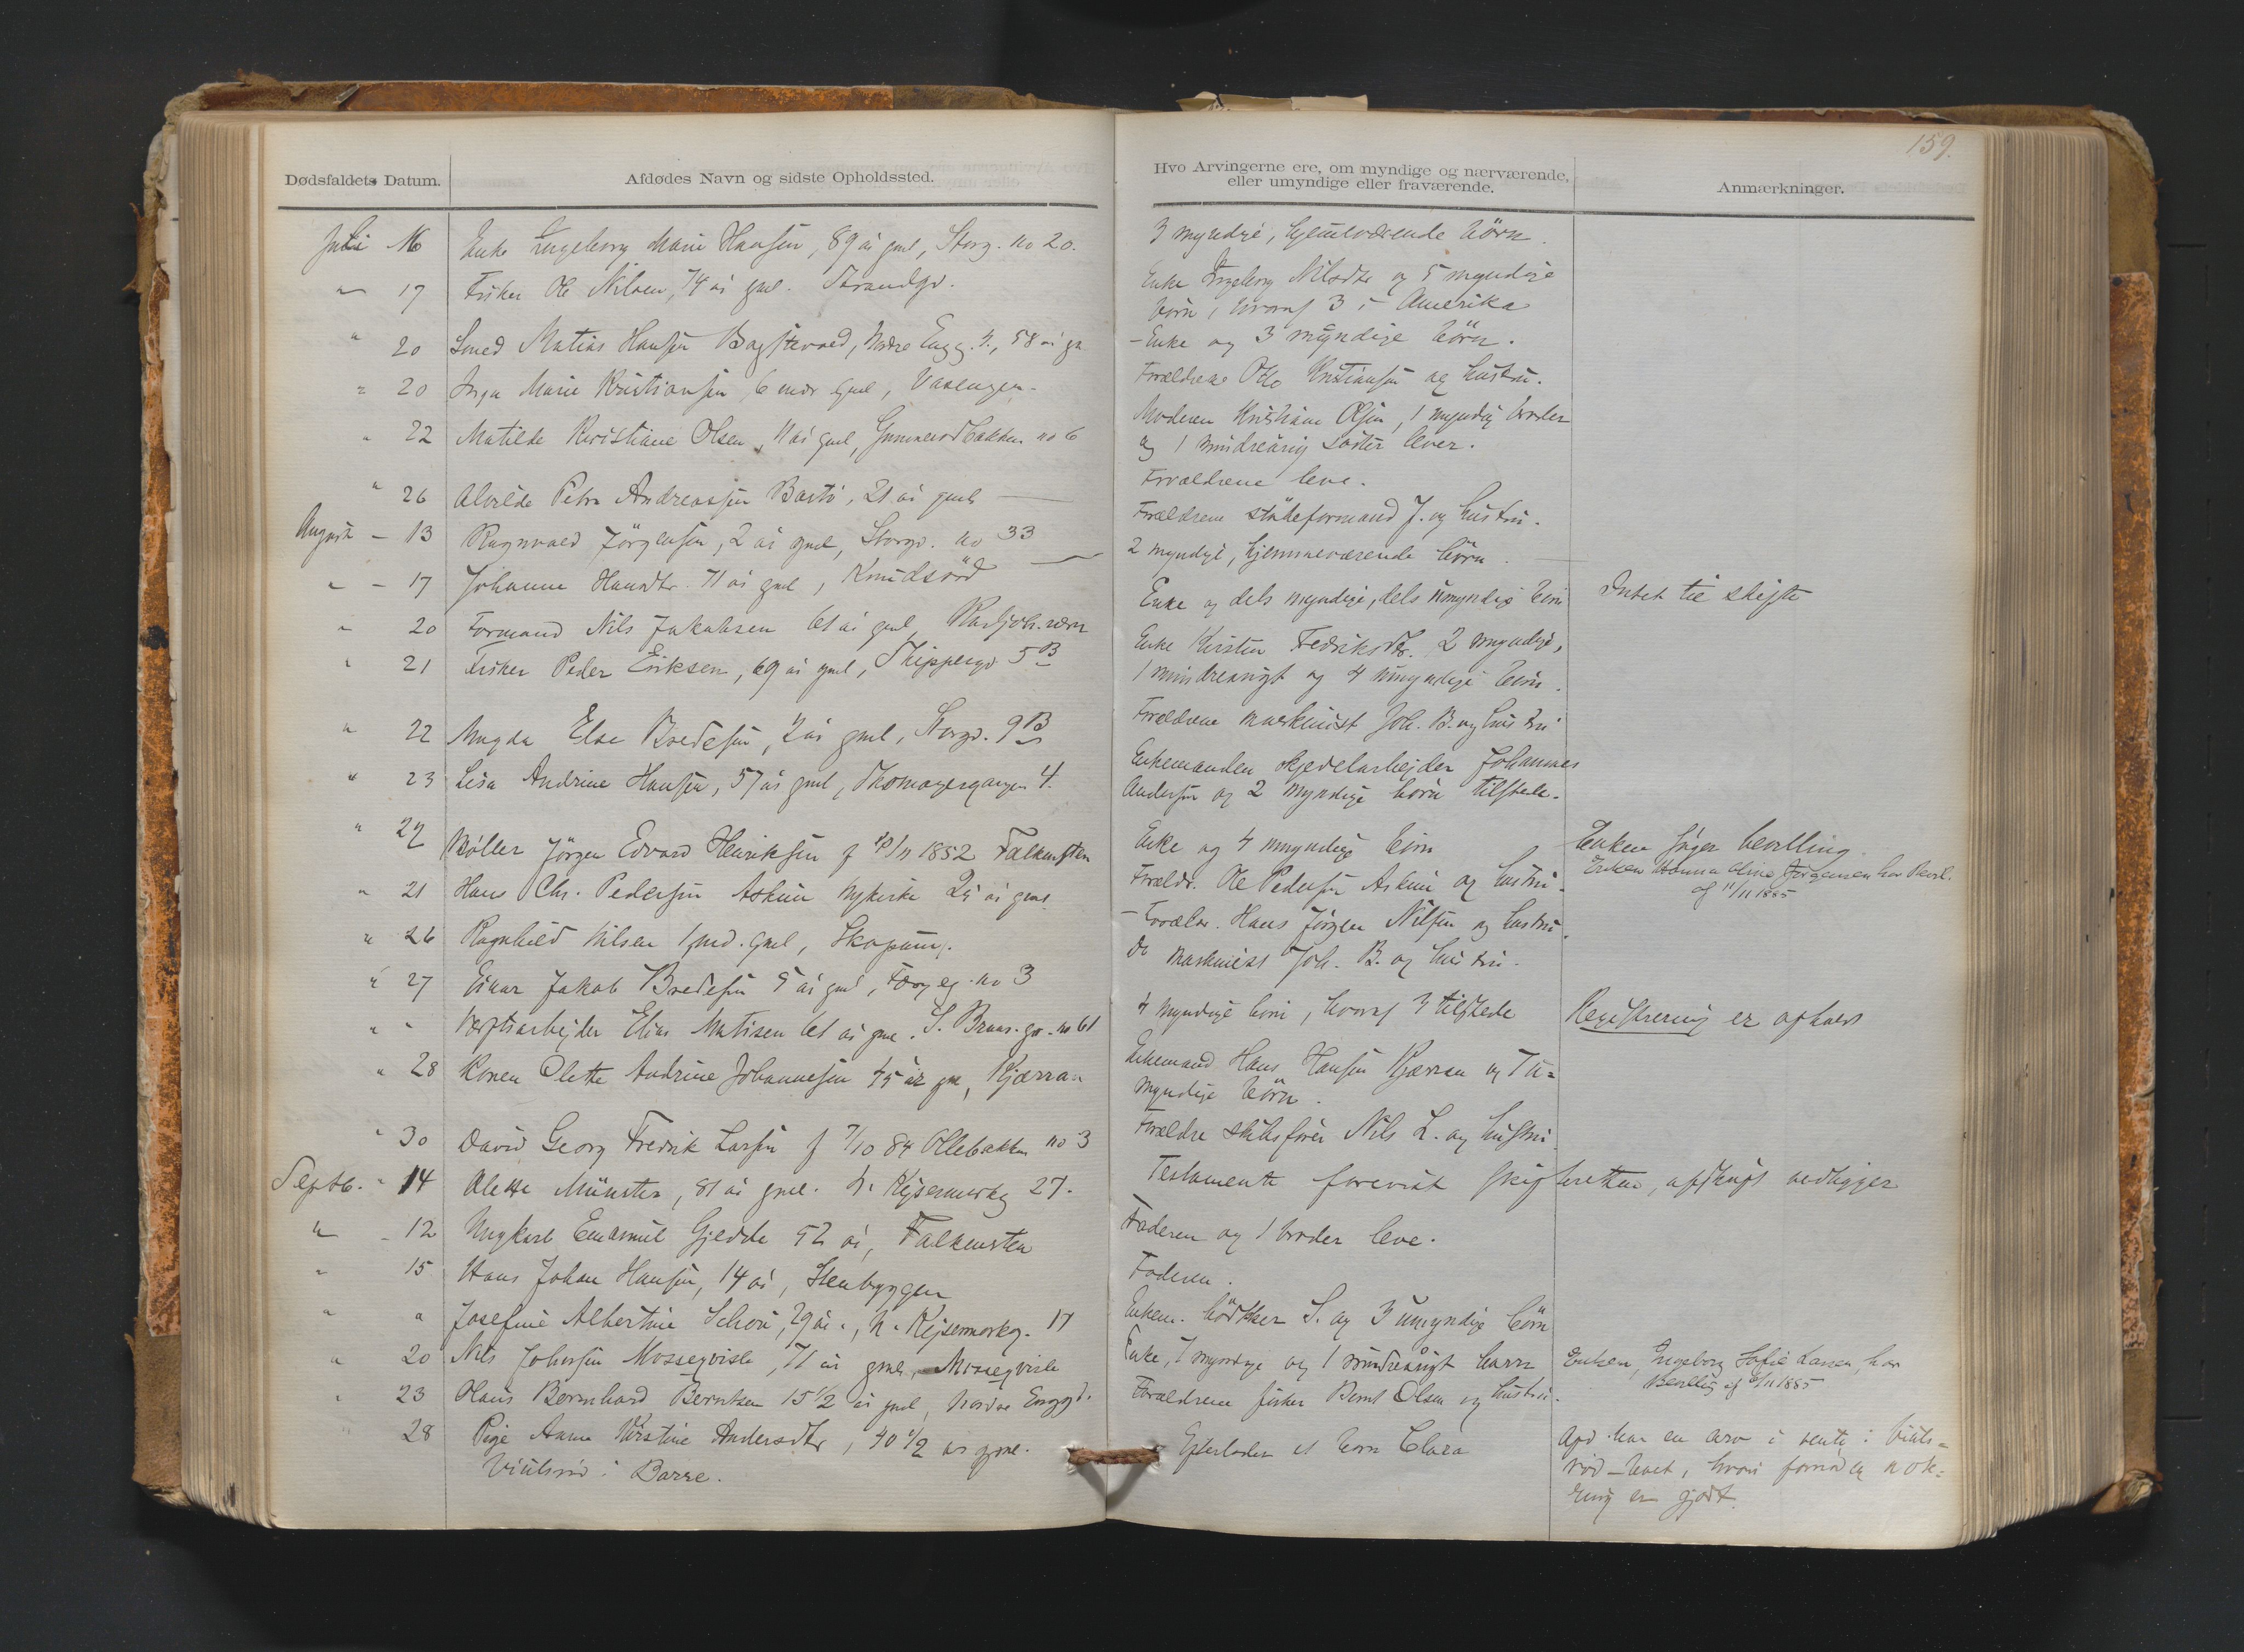 159.
Dødsfaldets Datum.
Afdødes Navn og sidste Opholdssted.
Hvo Arvingerne ere, om myndige og nærværende,
eller umyndige eller fraværende.
Anmærkninger.
Juli 16 Enke Ingeborg Marie Hansen, 89 år gml, Storg. no 20.
3 myndige, hjemværende börn.
" 17 Fisker Ole Nilsen, 74 år gml. Strandgd.
Enke Ingeborg Nilsdtr og 5 myndige
börn, hvoraf 3 i Amerika
" 20 Smed Matias Hansen Bagstevold, Nedre Engg. 4., 58 år gl
- Enke og 3 myndige börn.
" 20 Inga Marie Kristiansen 6 mdr gml,
Forældrene Otto Kristiansen og hustru.
" 22 Matilde Kristiane Olsen 11 år gml, Gunnerödbakken no 6
Moderen Kristiane Olsen, 1 myndig broder
og 1 mindreårig søster lever.
" 26 Alvilde Petra Andreassen Bastö, 21 år gml
Forældrene leve.
August - 13 Ragnvald Jörgensen, 2 år gml, Storgd. no 33
Forældrene formand J. og hustru.
" - 17 Johanne Hansdtr. 71 år gml, Knudsröd
2 myndige, hjemmeværende börn.
" 20 Formand Nils Jakobsen 61 år gml, Karljoh.værn
Enke og dels myndige, dels umyndige börn
Intet til skifte
" 21 Fisker Peder Eriksen, 69 år gml, Skippergd 5 B
Enke Kirstin Fedriksdtr. 2 myndige,
1 mindreårigt og 4 umyndige börn.
" 22 Magda Else Bredesen, 2 år gml, Storgd. 9 B
Forældrene maskinist Joh. B. og hustru
" 23 Lisa Andrine Hansen, 57 år gml, 4.
Enkemanden Johannes
Andersen og 2 myndige börn tilstede.
" 27 Möller Jörgen Edvard Henriksen f 1852 Falkensten
Enke og 4 umyndige börn
Enken søger bevilling.
Enken Hanna Oline Jörgensen har Bevil.
af 11/11 1885
" 21 Hans Chr. Pedersen Askim Nykirke år gml
Forældr. Ole Pedersen Askim og hustru.
" 26 Ragnhild Nilsen 1 md. gml, Skopum.
- Forældr. Hans Jörgen Nilsen og hustru.
" 27 Einar Jakob Bredesen 5 år gml, no 3
Do maskinist Joh. B. og hustru.
" " Værftsarbejder Elias Matisen 61 år gml. S. Braar.gd. no 61
4 myndige börn, hvoraf 3 tilstede
Registrering er afholdt
" 28 Konen Olette Andrine Johannesen 45 år gl, Kjærran
Enkemand Hans Hansen Kjærran og 7 u=
myndige börn.
" 30 David Georg Fredrik Larsen f 7/10 84 Ollebakken no 3
Forældre skibsförer Nils L. og hustru
Septb. " 14 Alette Münster, 81 år gml. N. Kejsermarkg 27.
Testamente forevist skifteretten, afskrift vedligger
" - 12 Ungkarl Emanuel Gjedde 52 år, Falkensten
Faderen og 1 broder leve.
" 15 Hans Johan Hansen, 14 år, Stenbyggen
Faderen.
" " Josefine Albertine Schou, 29 år., N. Kejsermarkg. 17
Enkem. bödkker S. og 3 umyndige börn
" 20 Nils Johnsen Mosseqvisle, 71 år gml, Mosseqvisle
Enke, 7 myndige og 1 mindreårigt barn
Enken, Ingeborg Sofie Larsen, har
Bevillig af 11/11 1885
" 23 Olaus Bernhard Berntsen 15 1/2 år gml, Nordre Enggd.
Forældrene fisker Bernt Olsen og hustru.
" 28 Pige Anne Kirstine Andersdtr, 40 1/2 år gml.
Viulsröd i Borre.
Efterlader et barn Clara
Afd. har en arv i vente i Viuls=
röd-boet, hvori
er gjort.